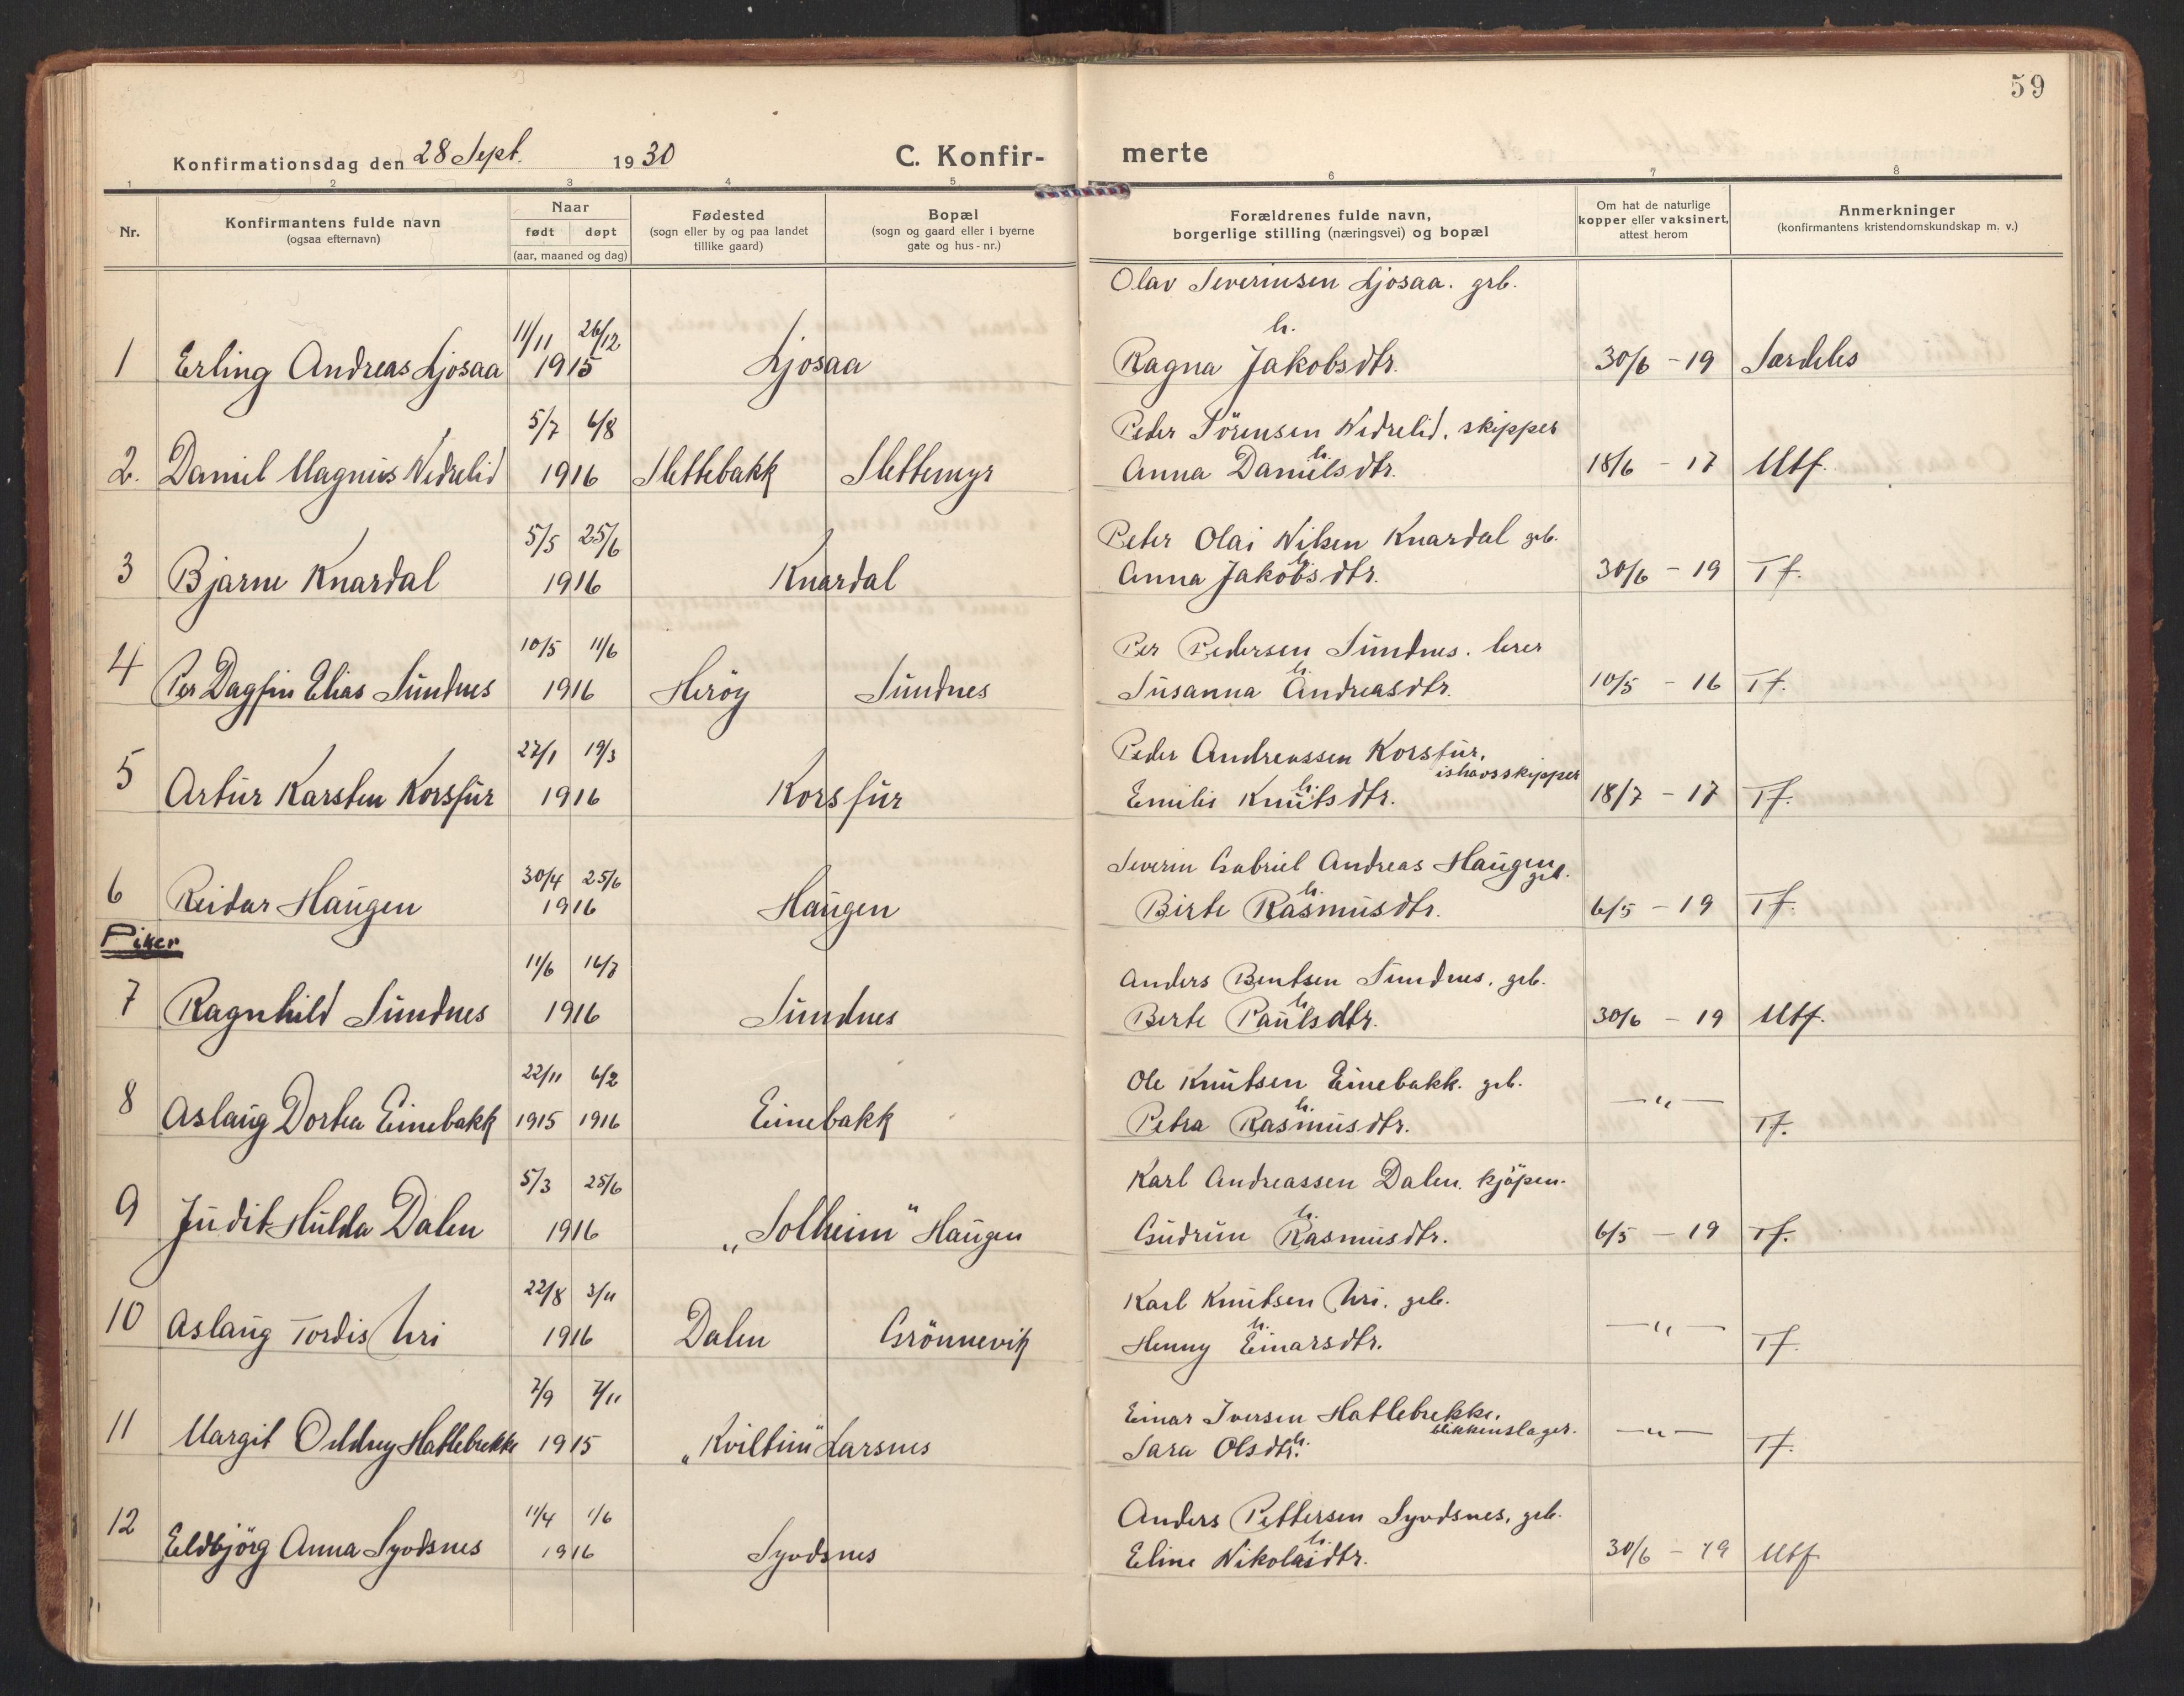 59
Konfirmationsdag den 28 Sept. 1930 C. Konfir- merte
1 2 3 4 5 6 7 8
Nr. Konfirmantens fulde navn (ogsaa efternavn) Naar født døpt (aar, maaned og dag) Fødested (sogn eller by og paa landet tillike gaard) Bopæl (sogn og gaard eller i byerne gate og hus-nr.) Forældrenes fulde navn, borgerlige stilling (næringsvei) og bopæl Om hat de naturlige kopper eller vaksinert, attest herom Anmerkninger (konfirmantens kristendomskundskap m. v.)
Olav Severinsen Ljosaa. grb.
11/11 26/12 h.
1 Erling Andreas Ljosaa 1915 Ljosaa Ragna Jakobsdtr. 30/6 - 19 Særdeles
5/7 6/8 Peder Sörensen Nedrelid, skipper
2. Daniel Magnus Nedrelid 1916 Slettebakk Slettemyr Anna Danielsdtr. h. 18/6 - 17 Mtf.
5/5 25/6 Peter Olai Nilsen Knardal grb.
3 Bjarne Knardal 1916 Knardal Anna Jakobsdtr. h. 30/6 - 19 Tf.
10/5 11/6 Per Pedersen Sundnes. lærer
4 Per Dagfin Elias Sundnes 1916 Heröy Sundnes Susanna Andreasdtr. h. 10/5 - 16 Tf.
27/1 19/3 Peder Andreassen Korsfur,
ishavsskipper
5 Artur Karsten Korsfur 1916 Korsfur Emilie Knutsdtr. h. 18/7 - 17 Tf.
30/4 25/6 Severin Gabriel Andreas Haugen grb.
6 Reidar Haugen 1916 Haugen Birte Rasmusdtr. h. 6/5 - 19 Tf.
Piker
11/6 16/7 Anders Bentsen Sundnes, grb.
7 Ragnhild Sundnes 1916 Sundnes Berte Paulsdtr. h. 30/6 - 19 Mtf.
22/11 6/2 Ole Knutsen Einebakk. grb.
8 Aslaug Dortea Einebakk 1915 1916 Einebakk Petra Rasmusdtr. h. —"— Tf.
5/3 25/6 Karl Andreassen Dalen. kjöpm.
9 Judit Hulda Dalen 1916 „Solheim" Haugen Gudrun Rasmusdtr. h. 6/5 - 19 Tf.
22/8 3/11 Karl Knutsen Uri. grb.
10 Aslaug Tordis Uri 1916 Dalen Grönnevik Henny Einarsdtr. h. —"— Tf.
7/9 7/11 Einar Iversen Hatlebrekke.
blikkenslager.
11 Margit Oddny Hatlebrekke 1915 „Kviltun" Larsnes Sara Olsdtr. h. —"— Tf.
11/4 1/6 Anders Pettersen Syvdsnes, grb.
12 Eldbjörg Anna Syvdsnes 1916 Syvdsnes Eline Nikolaidtr. h. 30/6 - 19 Mtf